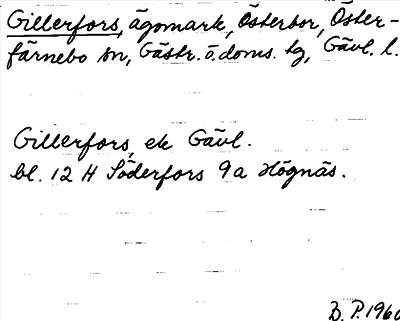 Gillerfors, ägomark, Österbor, Öster-
färnebo sn, Gästr. ö. doms. tg, Gävl. l.
Gillerfors, ek Gävl.
bl. 12 H Söderfors 9a Högnäs.
B. P. 1960